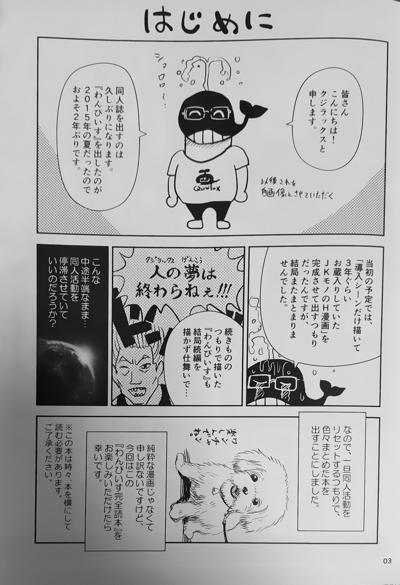 はじめに
皆さん
こんにちは!
クジラックスと
申します。
ショロロロー…
同人誌を出すのは
久しぶりになります。
『わんぴいす』を出したのが
2015年の夏だったので
およそ2年ぶりです。
Quulux
以後これを
自画像とさせていただく
当初の予定では、
「導入シーンだけ描いて
3年ぐらい
お蔵入りしていた
JKモノのH漫画」を
完成させて出すつもり
だったんですが、
結局またまとまりま
せんでした。
クジラックス げんこう
人の夢は
終わらねぇ!!!
続きもの
つもりで描いた
『わんぴいす』も
結局続編を
描かず仕舞いで…
こんな
中途半端なまま…
同人活動を
停滞させていて
いいのだろうか?
なので、一旦同人活動を
リセットするつもりで、
色々まとめた本を
出すことにしました。
純粋な漫画じゃなくて
申し訳ないですけど、
今回はこの
『わんぴいす完全読本』を
お楽しみいただけたら
幸いです。
※この本は時々、本を横にして
読む必要があります。
ご了承ください。
03